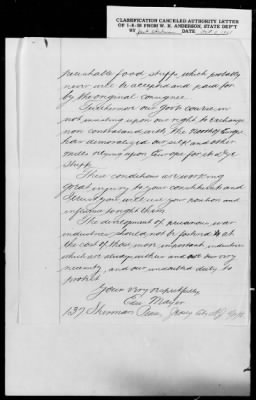 CLASSIFICATION CANCELLED AUTHORITY LETTER
OF 1-8-58 FROM W. H. ANDERSON, STATE DEP'T
BY DATE
perishable food stuffs, which probably
never will be accepted and paid for
by the original consignee.
Furthermore our Govts course in
not insisting upon our right to exchange
non contraband with the North of Europe
has demoralized our silk and other
mills relying upon Europe for its dye
stuffs.
These conditions are working
great injury to your constituents and
I trust you will use your position and
influence to right them.
The development of precarious war
industries should not be fostered at
the cost of those more important industries
which are already with us and are our very
necessity, and our undoubted duty to
protect.
Yours very respectfully,
Mayer
137 Sherman Place, Jersey City NJ